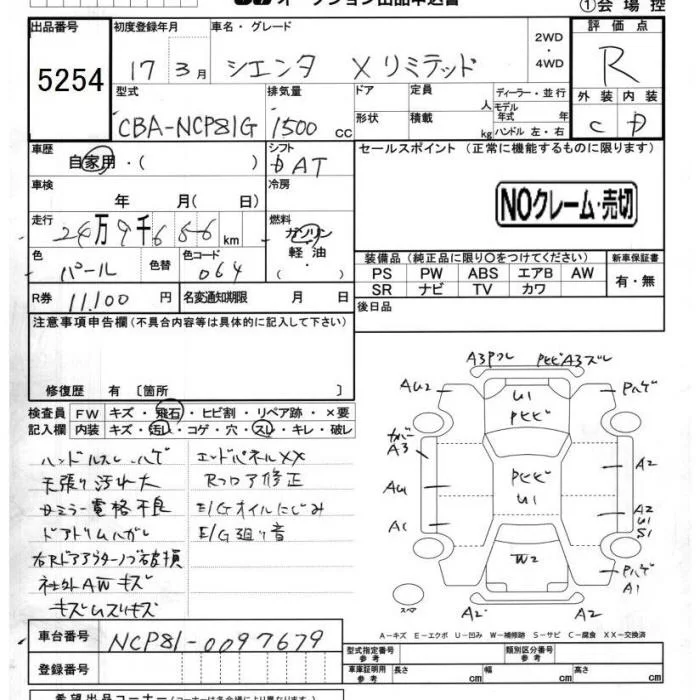 オークション出品申込書
①会場控
出品番号
5254
初度登録年月
17 3月
車名・グレード
シエンタ Xリミテッド
2WD
・
4WD
評価点
R
外装 内装
C D
型式
CBA-NCP81G
排気量
1500 cc
ドア
定員
人
ディーラー・並行
モデル
年式 年
形状
積載
kg
ハンドル 左・右
車歴
自家用・( )
シフト
AT
セールスポイント (正常に機能するものに限ります)
車検
年 月( 日)
冷房
NOクレーム・売切
走行
24万9千656km
燃料
ガソリン
軽油
色
パール
色替
色コード
064
装備品(純正品に限り〇をつけてください)
新車保証書
PS PW ABS エアB AW
SR ナビ TV カワ
有・無
R券
11,100円
名変通知期限 月 日
後日品
注意事項申告欄(不具合内容等は具体的に記入して下さい)
修復歴 有〔箇所 〕
検査員
記入欄
FW キズ・飛石・ヒビ割・リペア跡・×要
内装 キズ・汚れ・コゲ・穴・スレ・キレ・破レ
ハンドルスレ ハゲ
エンドパネルXX
天張り汚れ大
Rフロア修正
サミラー電格不良
E/Gオイルにじみ
ドアトリムハガレ
E/G廻り音
社外AWキズ
A3 PヒビA3ズレ
AU2
U1
Pヒビ
Pハゲ
A3
A2
AU1
Pヒビ
U1
A1
A2
U1
S1
W2
Pハゲ
A1
スペア
A2
A2
A-キズ E-エクボ U-凹み W-補修跡 S-サビ C-腐食 XX-交換済
車台番号
NCP81-0097679
登録番号
型式指定番号
参考
類別区分番号
参考
車庫証明用
参考
長さ cm
幅 cm
高さ cm
希望出品コーナー